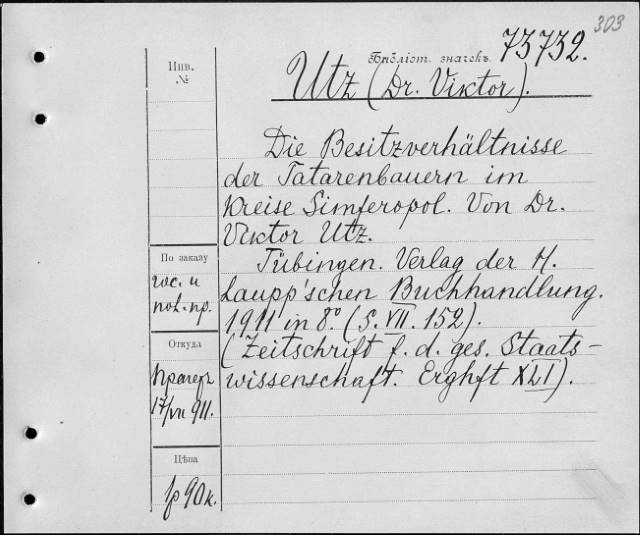 303
Библіот. значекъ 73732.
Инв.
№
Utz (Dr. Viktor).
Die Besitzverhältnisse
der Tatarenbauern im
Kreise Simferopol. Von Dr.
Viktor Utz.
Tübingen. Verlag der H.
Laupp'schen Buchhandlung.
1911 in 8° (S. VII. 152).
(Zeitschrift f. d. ges. Staats-
wissenschaft. Erghft XLI).
По заказу
гос. и
пол. пр.
Откуда
17/VII 911.
Цѣна
1р 90к.